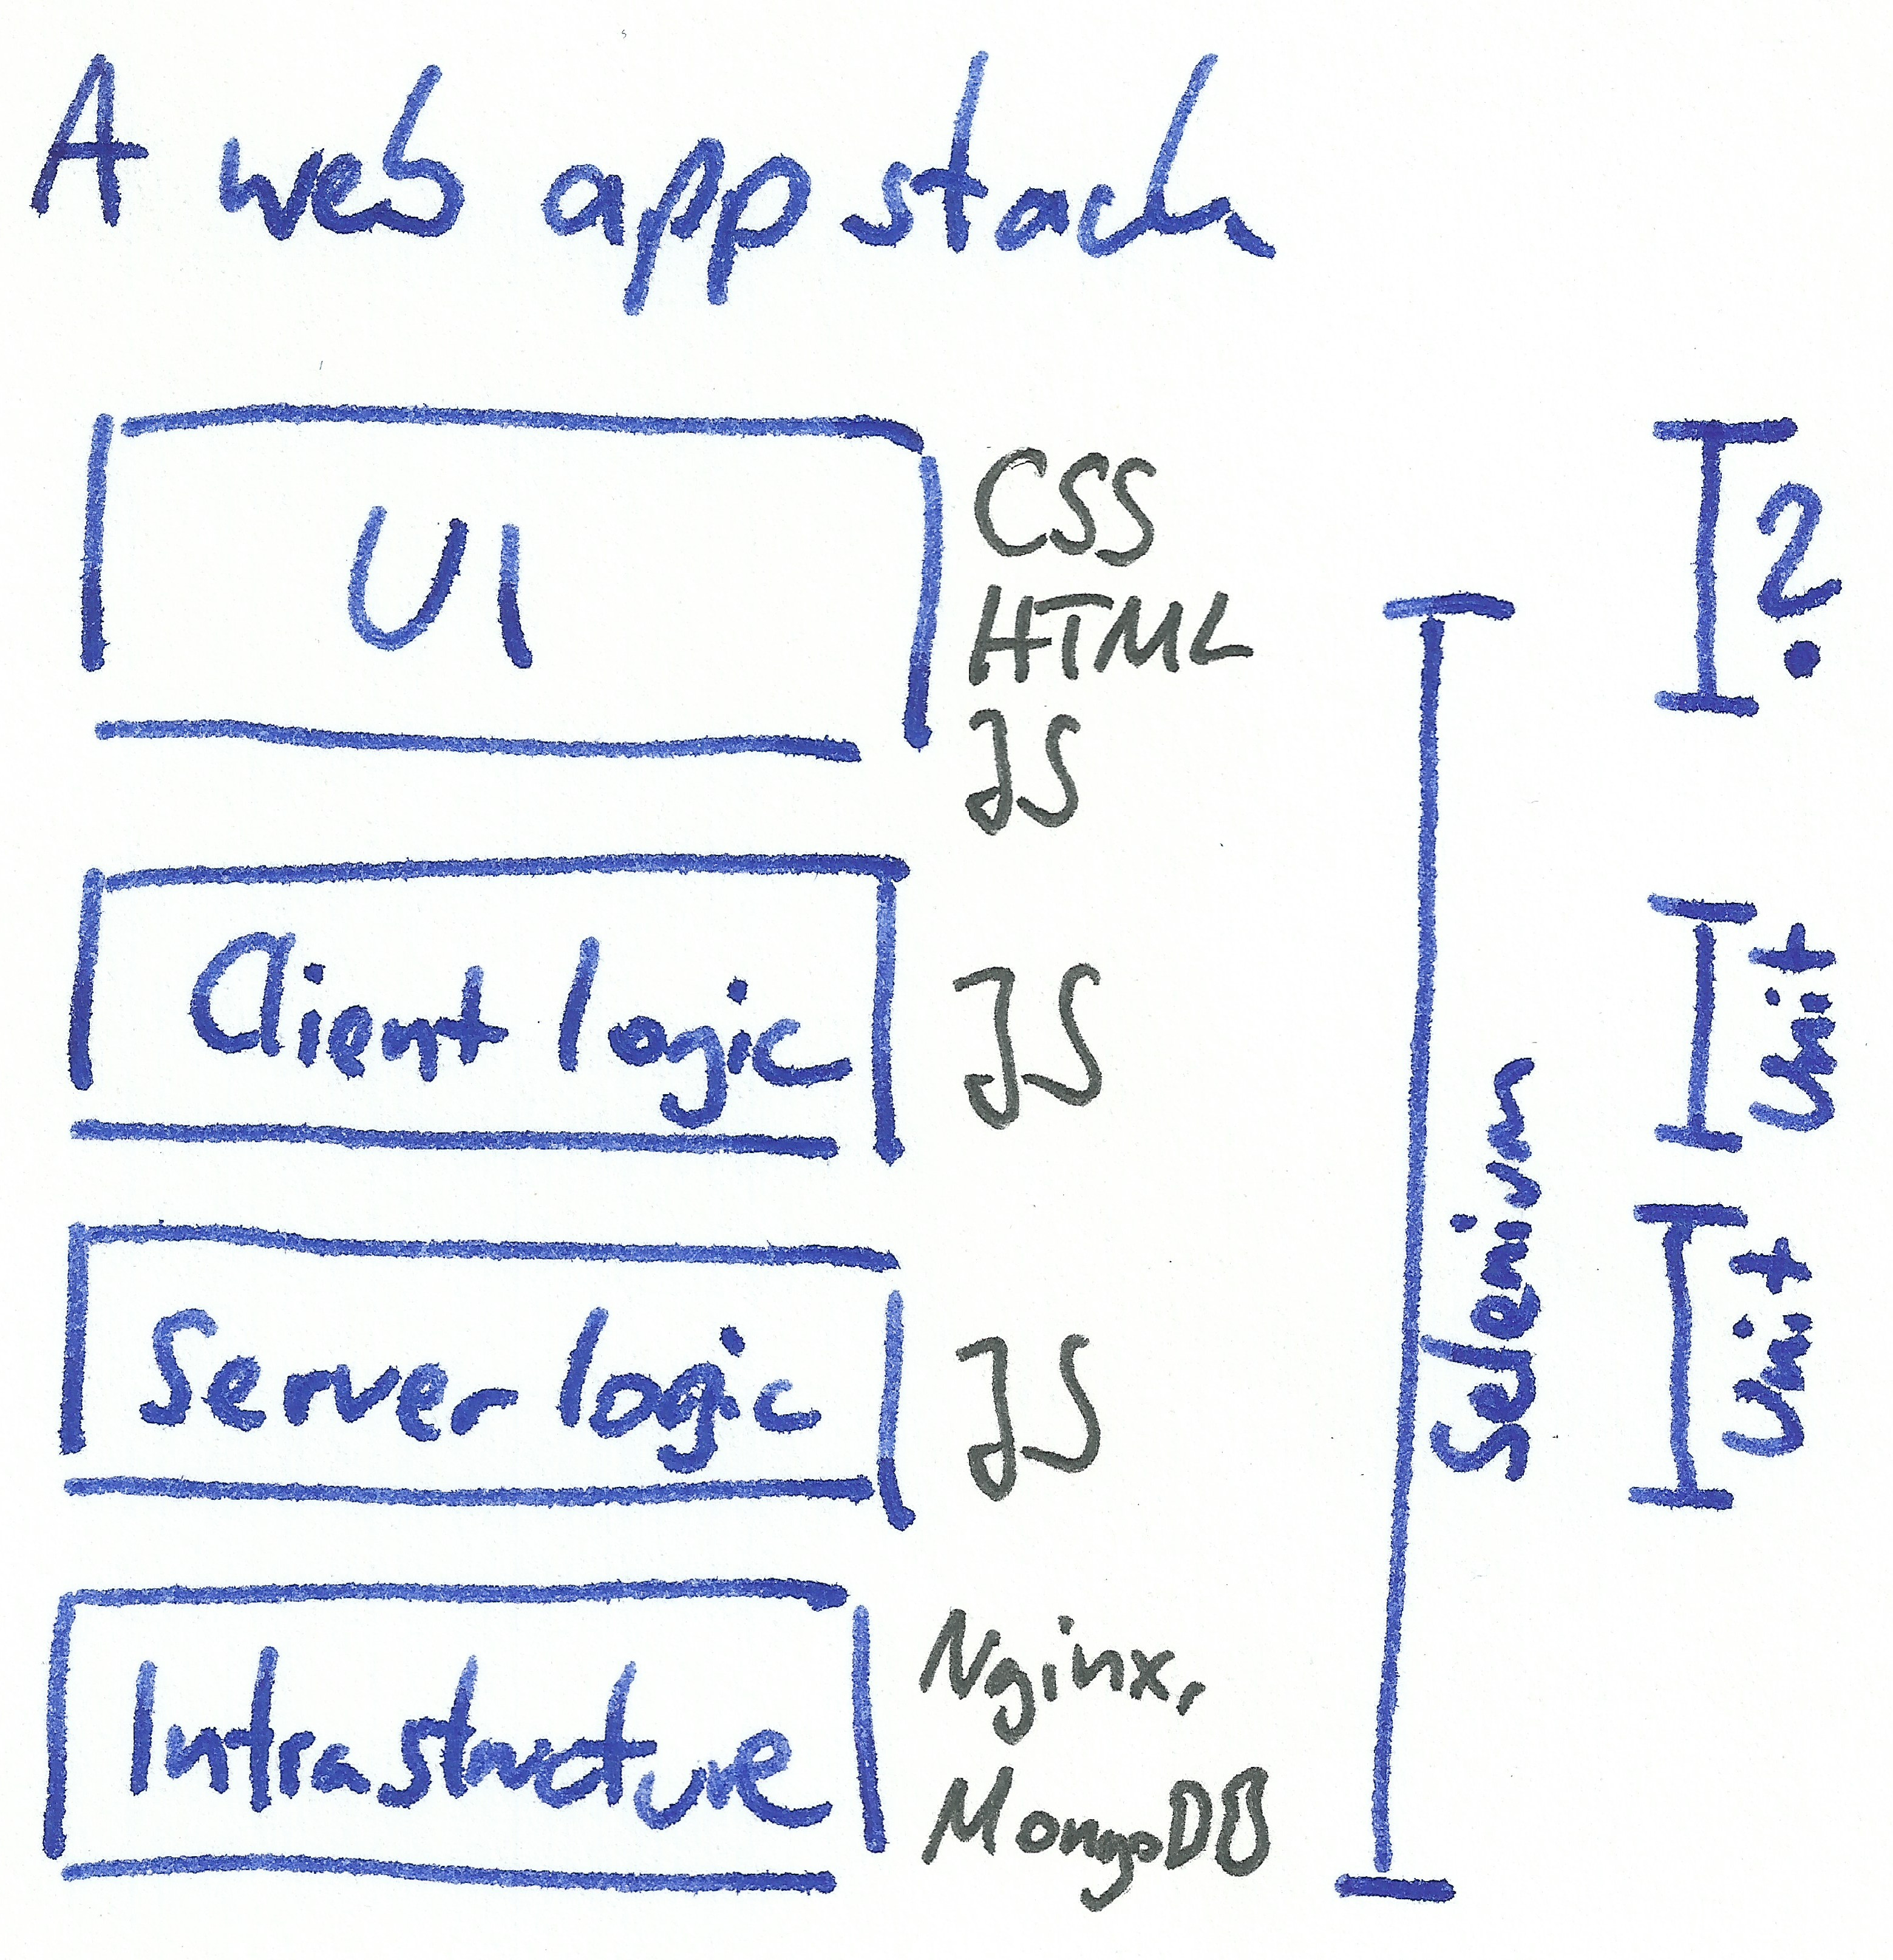 A web app stack
UI
CSS
HTML
JS
?
Client logic
JS
Unit
Server logic
JS
Selenium
Unit
Infrastructure
Nginx,
MongoDB